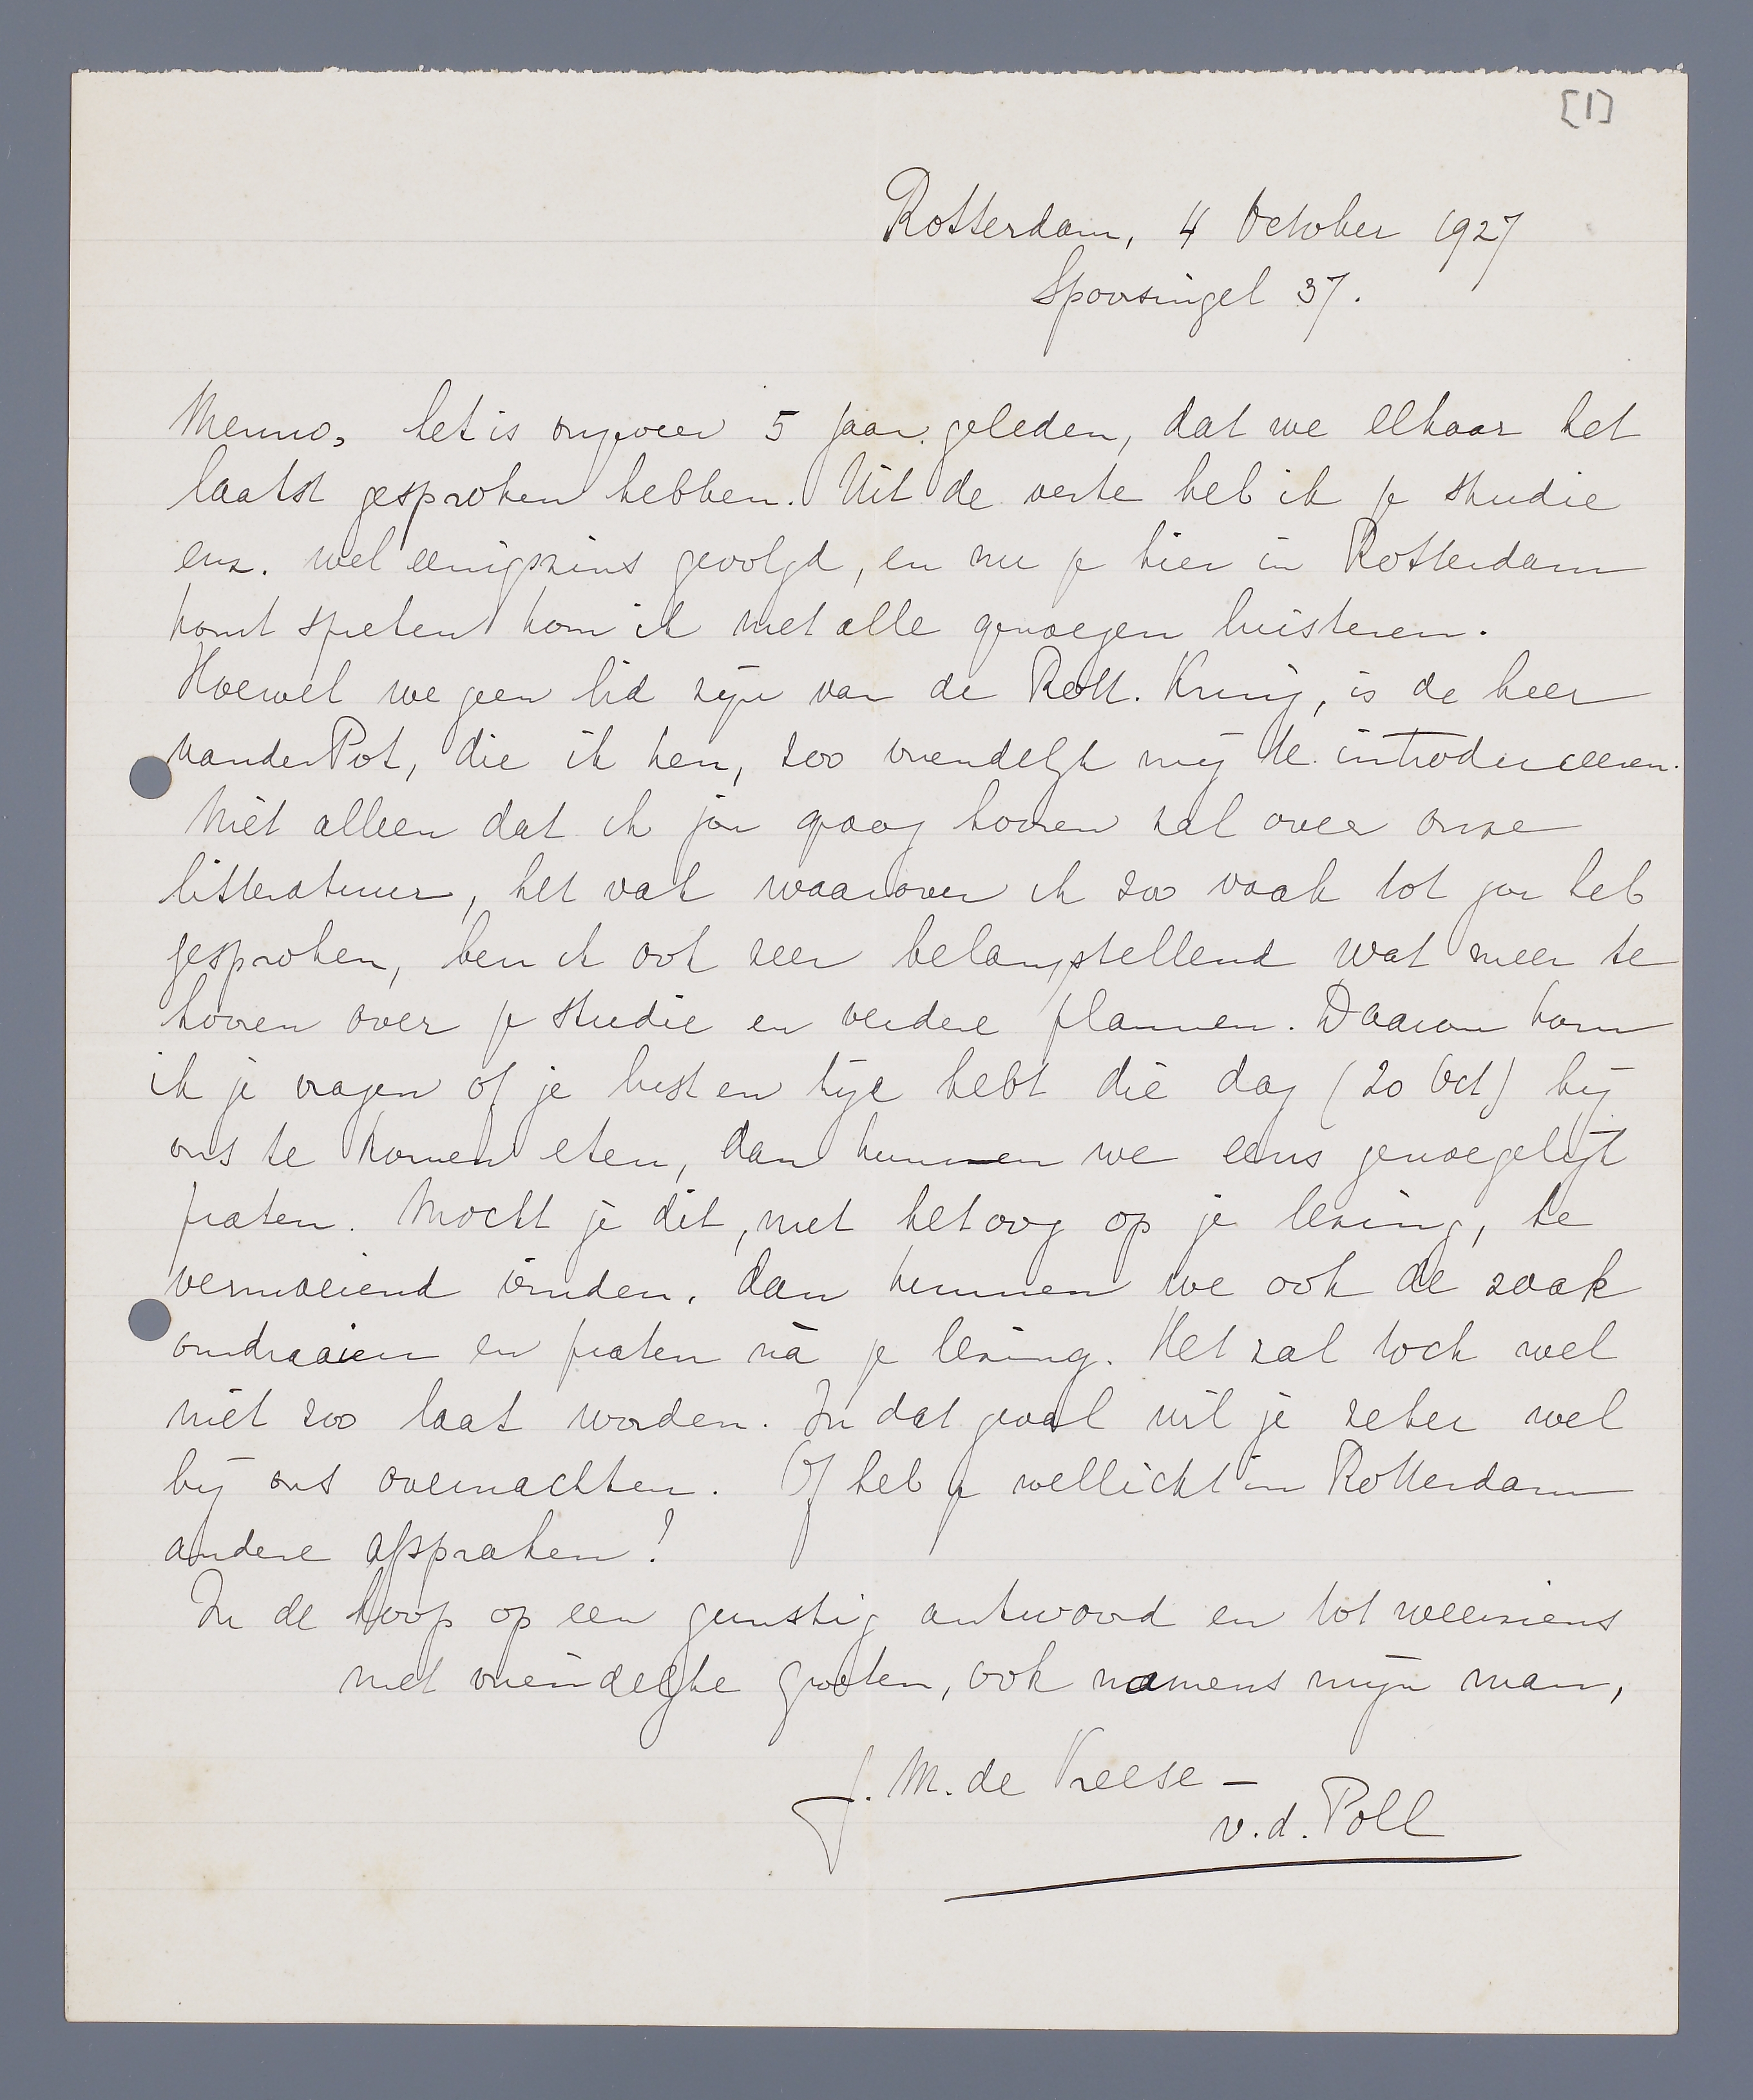 [1]
Rotterdam, 4 October 1927
Spoorsingel 37.
Menno, het is ongeveer 5 jaar geleden, dat we elkaar het
laatst gesproken hebben. Uit de verte heb ik je studie
enz. wel eenigszins gevolgd, en nu je hier in Rotterdam
komt spreken kom ik met alle genoegen luisteren.
Hoewel we geen lid zijn van de Rott. Kring, is de heer
van der Pot, die ik ken, zoo vriendelijk mij te introduceeren.
Niet alleen dat ik jou graag hooren zal over onze
litteratuur, het vak waarover ik zoo vaak tot jou heb
gesproken, ben ik ook zeer belangstellend wat meer te
hooren over je studie en verdere plannen. Daarom kom
ik je vragen of je lust en tijd hebt die dag (20 Oct) bij
ons te komen eten, dan kunnen we eens genoegelijk
praten. Mocht je dit, met het oog op je lezing, te
vermoeiend vinden, dan kunnen we ook de zaak
omdraaien en praten nà je lezing. Het zal toch wel
niet zoo laat worden. In dat geval wil je zeker wel
bij ons overnachten. Of heb je wellicht in Rotterdam
andere afspraken!
In de hoop op een gunstig antwoord en tot weerziens
met vriendelijke groeten, ook namens mijn man,
J. M. de Vreese –
v.d. Poll